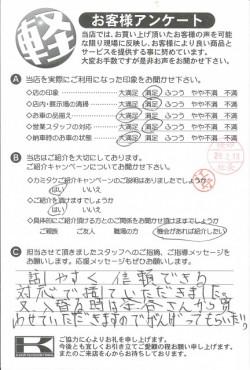 軽
お客様アンケート
当店では、お買い上げ頂いたお客様の声を可能
な限り現場に反映し、お客様により良い商品と
サービスを提供する事に努めています。
大変お手数ですが是非お声をお聞かせ下さい。
A 当店を実際にご利用になった印象をお聞かせ下さい。
◇店の印象 大満足 満足 ふつう やや不満 不満
◇店内・展示場の清掃 大満足 満足 ふつう やや不満 不満
◇お車の品揃え 大満足 満足 ふつう やや不満 不満
◇営業スタッフの対応 大満足 満足 ふつう やや不満
◇納車時のお車の状態 大満足 満足 ふつう やや不満
B 当店はご紹介を大切にしております。
ご紹介キャンペーンについてお聞かせ下さい。
◇カミタケご紹介キャンペーンのご説明はありましたでしょうか
はい いいえ
◇ご紹介を頂けますでしょうか
はい いいえ
◇具体的にご紹介頂ける方とのご関係をお聞かせ頂けますでしょうか
ご親族 ご友人 職場の方 機会があれば紹介したい
C 担当させて頂きましたスタッフへのご指摘、ご指導メッセージを
お願いします。応援メッセージもぜひお願いします。
話しやすく信頼できる
対応で
していただきました。
又入替る時は
さんから買
わせていただきますのでがんばってもらいたい
K
ご協力に心よりお礼を申し上げます。
今後とも宜しくお引き立てご愛顧の程お願い申し上げます。
またのご来店を心からお待ちしております。